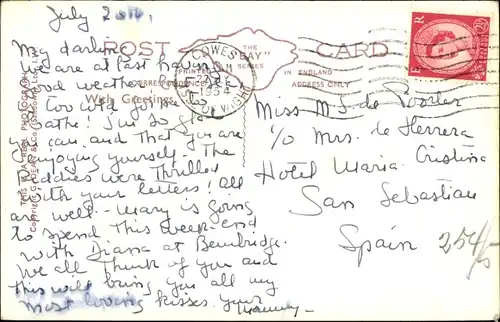 July 20th,
POST CARD
THE "BAY" SERIES
COWES
1954
OF WIGHT
PRINTED IN ENGLAND
CORRESPONDENCE
ADDRESS ONLY
With Greetings
THIS IS A REAL PHOTOGRAPH
My darling
We are at last having
good weather, but
too cold to
bathe. I'm so glad
you can. and that you are
enjoying yourself. The
Daddies were thrilled
with your letters! All
are well. Mary is going
to spend this week-end
with Diana at Bembridge.
We all think of you and
this will bring you all my
most loving kisses your
Mummy
E R
Miss M. S. de Porter
c/o Mrs. de Herrera
Hotel Maria Cristina
San Sebastian
Spain
254/5